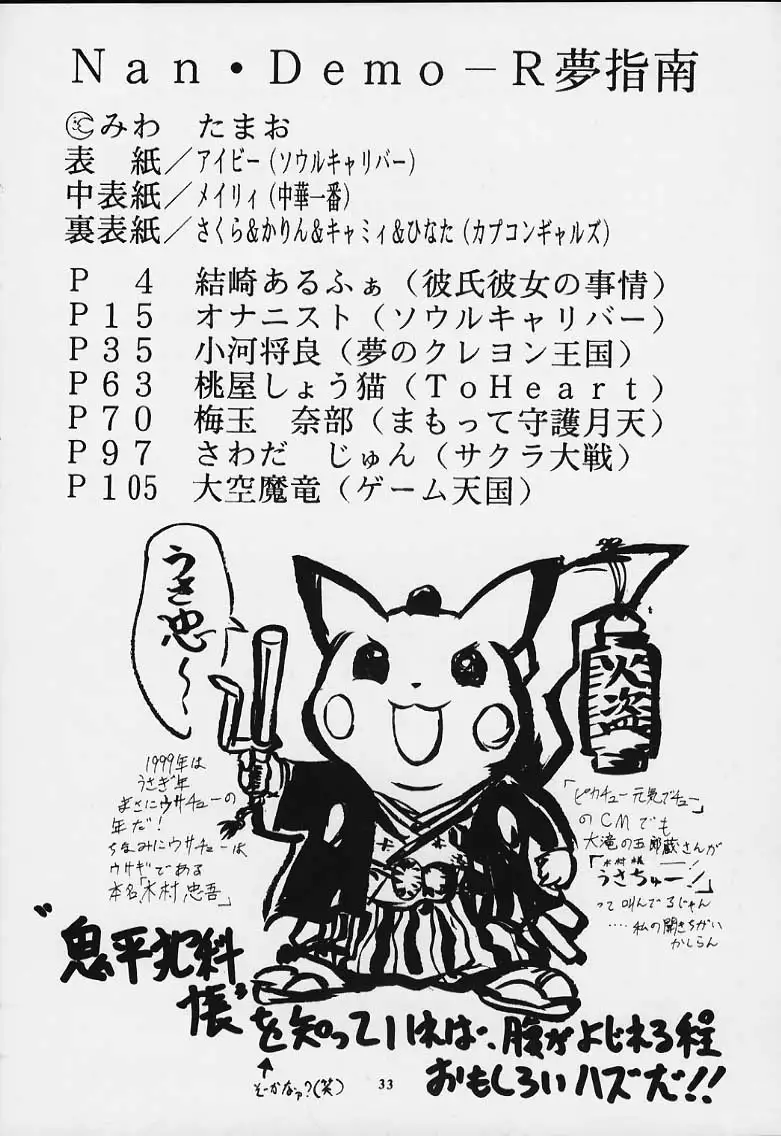 Nan・Demo－R夢指南
©みわ　たまお
表　紙／アイビー（ソウルキャリバー）
中表紙／メイリィ（中華一番）
裏表紙／さくら&かりん&キャミィ&ひなた（カプコンギャルズ）
P　4　結崎あるふぁ（彼氏彼女の事情）
P15　オナニスト（ソウルキャリバー）
P35　小河将良（夢のクレヨン王国）
P63　桃屋しょう猫（ToHeart）
P70　梅玉　奈部（まもって守護月天）
P97　さわだ　じゅん（サクラ大戦）
P105　大空魔竜（ゲーム天国）
うさ忠〜
火盗
1999年は
うさぎ年
まさにウサチューの
年だ！
ちなみにウサチューは
ウサギである
本名「木村忠吾」
「ピカチュー元気でチュー」
のCMでも
大滝の五郎蔵さんが
「うさちゅー！」
って叫んでるじゃん
‥‥私の聞きちがい
かしらん
"鬼平犯科
帳"を知っていれば、腹がよじれる程
おもしろいハズだ!!
↑
そーかなァ？（笑）
33